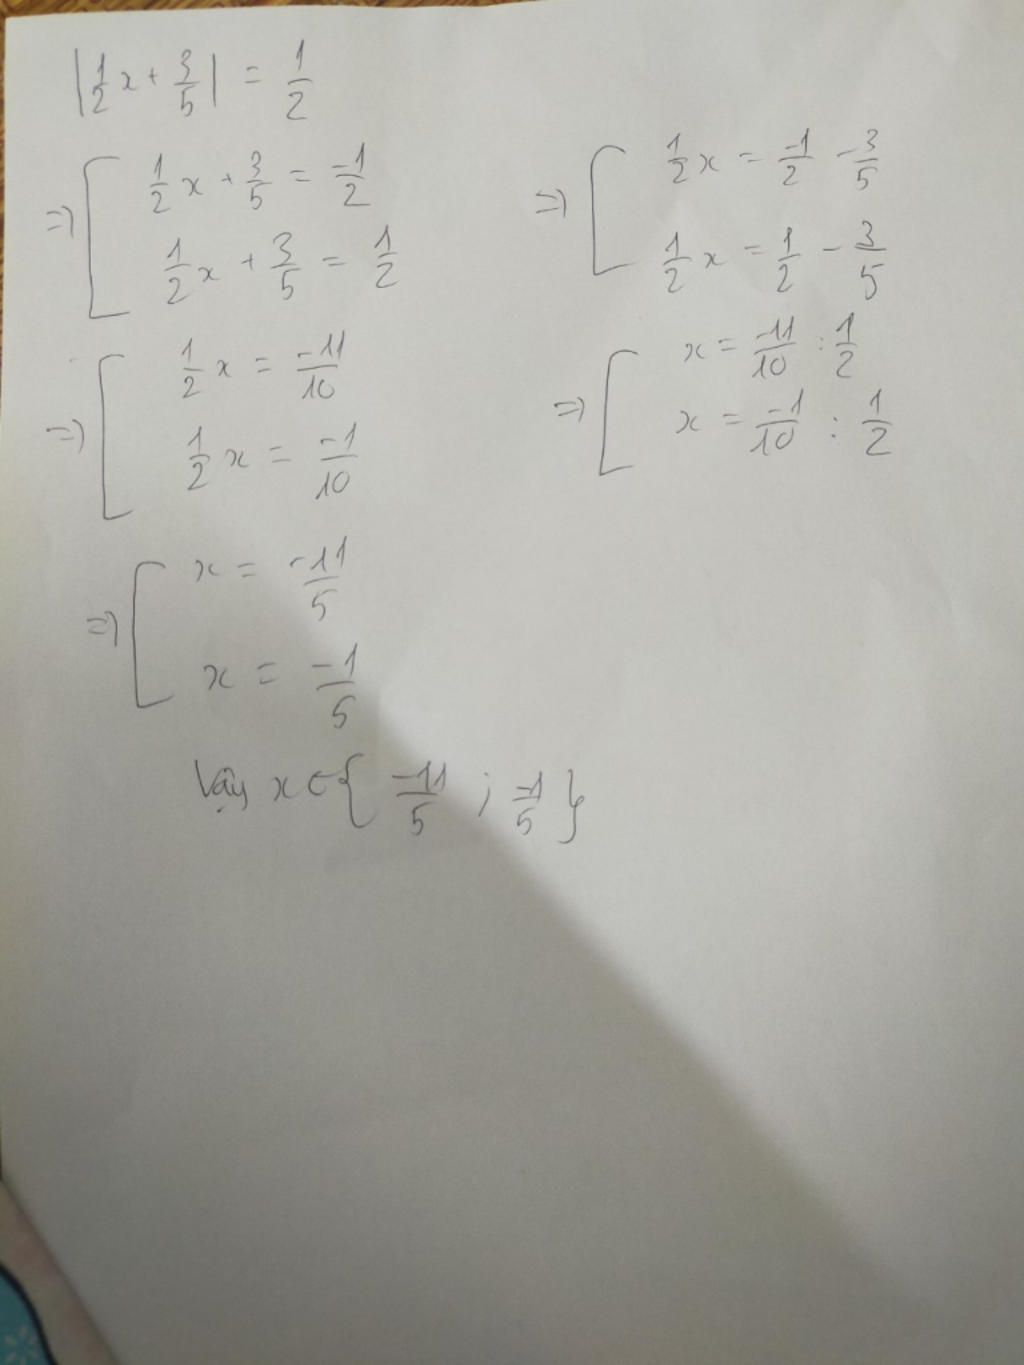 |1/2 x + 3/5| = 1/2
=> [ 1/2 x + 3/5 = -1/2
1/2 x + 3/5 = 1/2
=> [ 1/2 x = -1/2 - 3/5
1/2 x = 1/2 - 3/5
=> [ 1/2 x = -11/10
1/2 x = -1/10
=> [ x = -11/10 : 1/2
x = -1/10 : 1/2
=> [ x = -11/5
x = -1/5
Vậy x ∈ { -11/5 ; -1/5 }